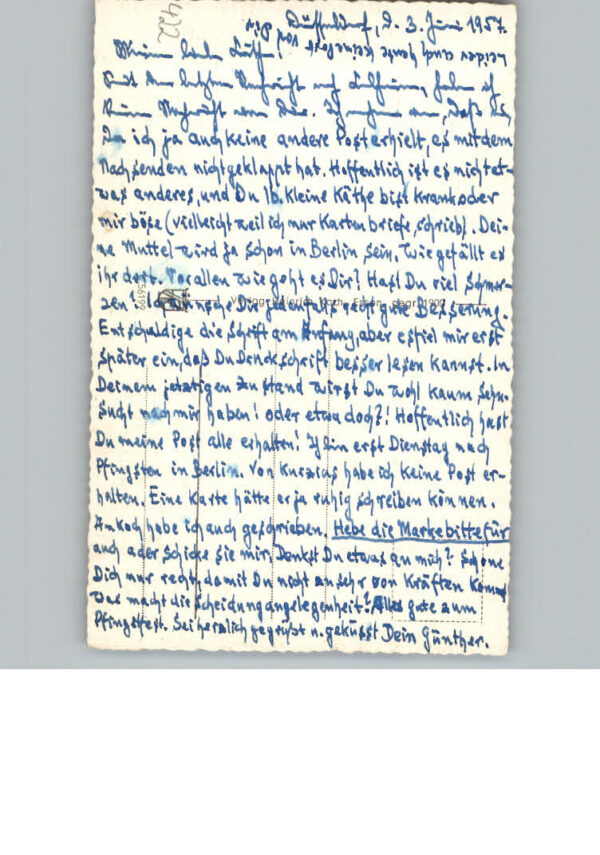 422
Düsseldorf, d. 3. Juni 1957.
leider auch heute keine Post von Dir
Meine liebe Käthe!
Seit der letzten Nachricht auf habe ich
keine Nachricht von Dir. Ich nehme an, daß es,
Da ich ja auch keine andere Post erhielt, es mit dem
Nachsenden nicht geklappt hat. Hoffentlich ist es nicht et-
was anderes, und Du lb. kleine Käthe bist krank oder
mir böse (vielleicht weil ich nur Kartenbriefe, schrieb). Dei-
ne Muttel wird ja schon in Berlin sein. Wie gefällt es
ihr dort. Vor allen wie geht es Dir? Hast Du viel Schmer-
zen? Ich wünsche Dir jedenfalls recht gute Besserung.
Entschuldige die Schrift am Anfang, aber es fiel mir erst
später ein, daß Du Druckschrift besser lesen kannst. In
Deinem jetzigen Zustand wirst Du wohl kaum Sehn-
sucht nach mir haben! oder etwa doch?! Hoffentlich hast
Du meine Post alle erhalten! Ich bin erst Dienstag nach
Pfingsten in Berlin. Von habe ich keine Post er-
halten. Eine Karte hätte er ja ruhig schreiben können.
An Koch habe ich auch geschrieben. Hebe die Marke bitte für
auch oder schicke sie mir. Denkst Du etwas an mich? Schone
Dich nur recht, damit Du nicht zu sehr von Kräften kommst
Was macht die Scheidungangelegenheit? Alles gute zum
Pfingstfest. Sei herzlich gegrüßt u. geküsst Dein Günther.
56199
Verlag: Heinrich Koch, Essen, gegr. 1900